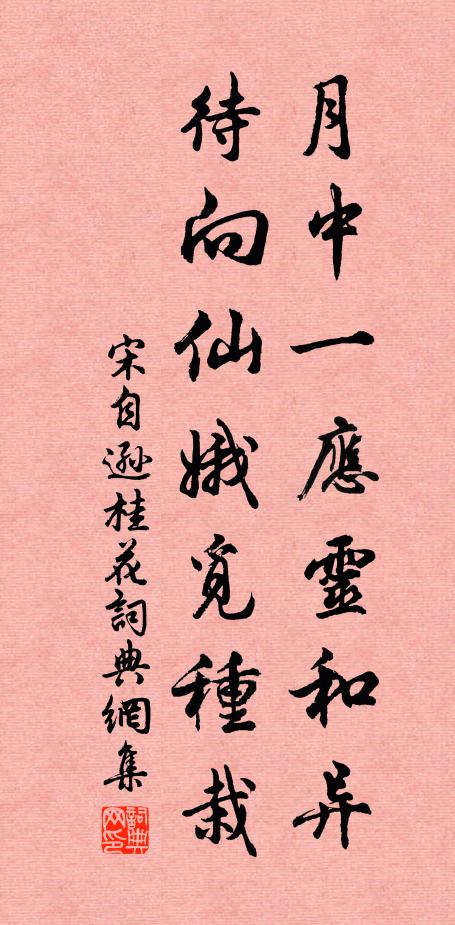 月中一應靈和异
待向仙娥覓種栽
宋自遜桂花詞典網集
詞典网印